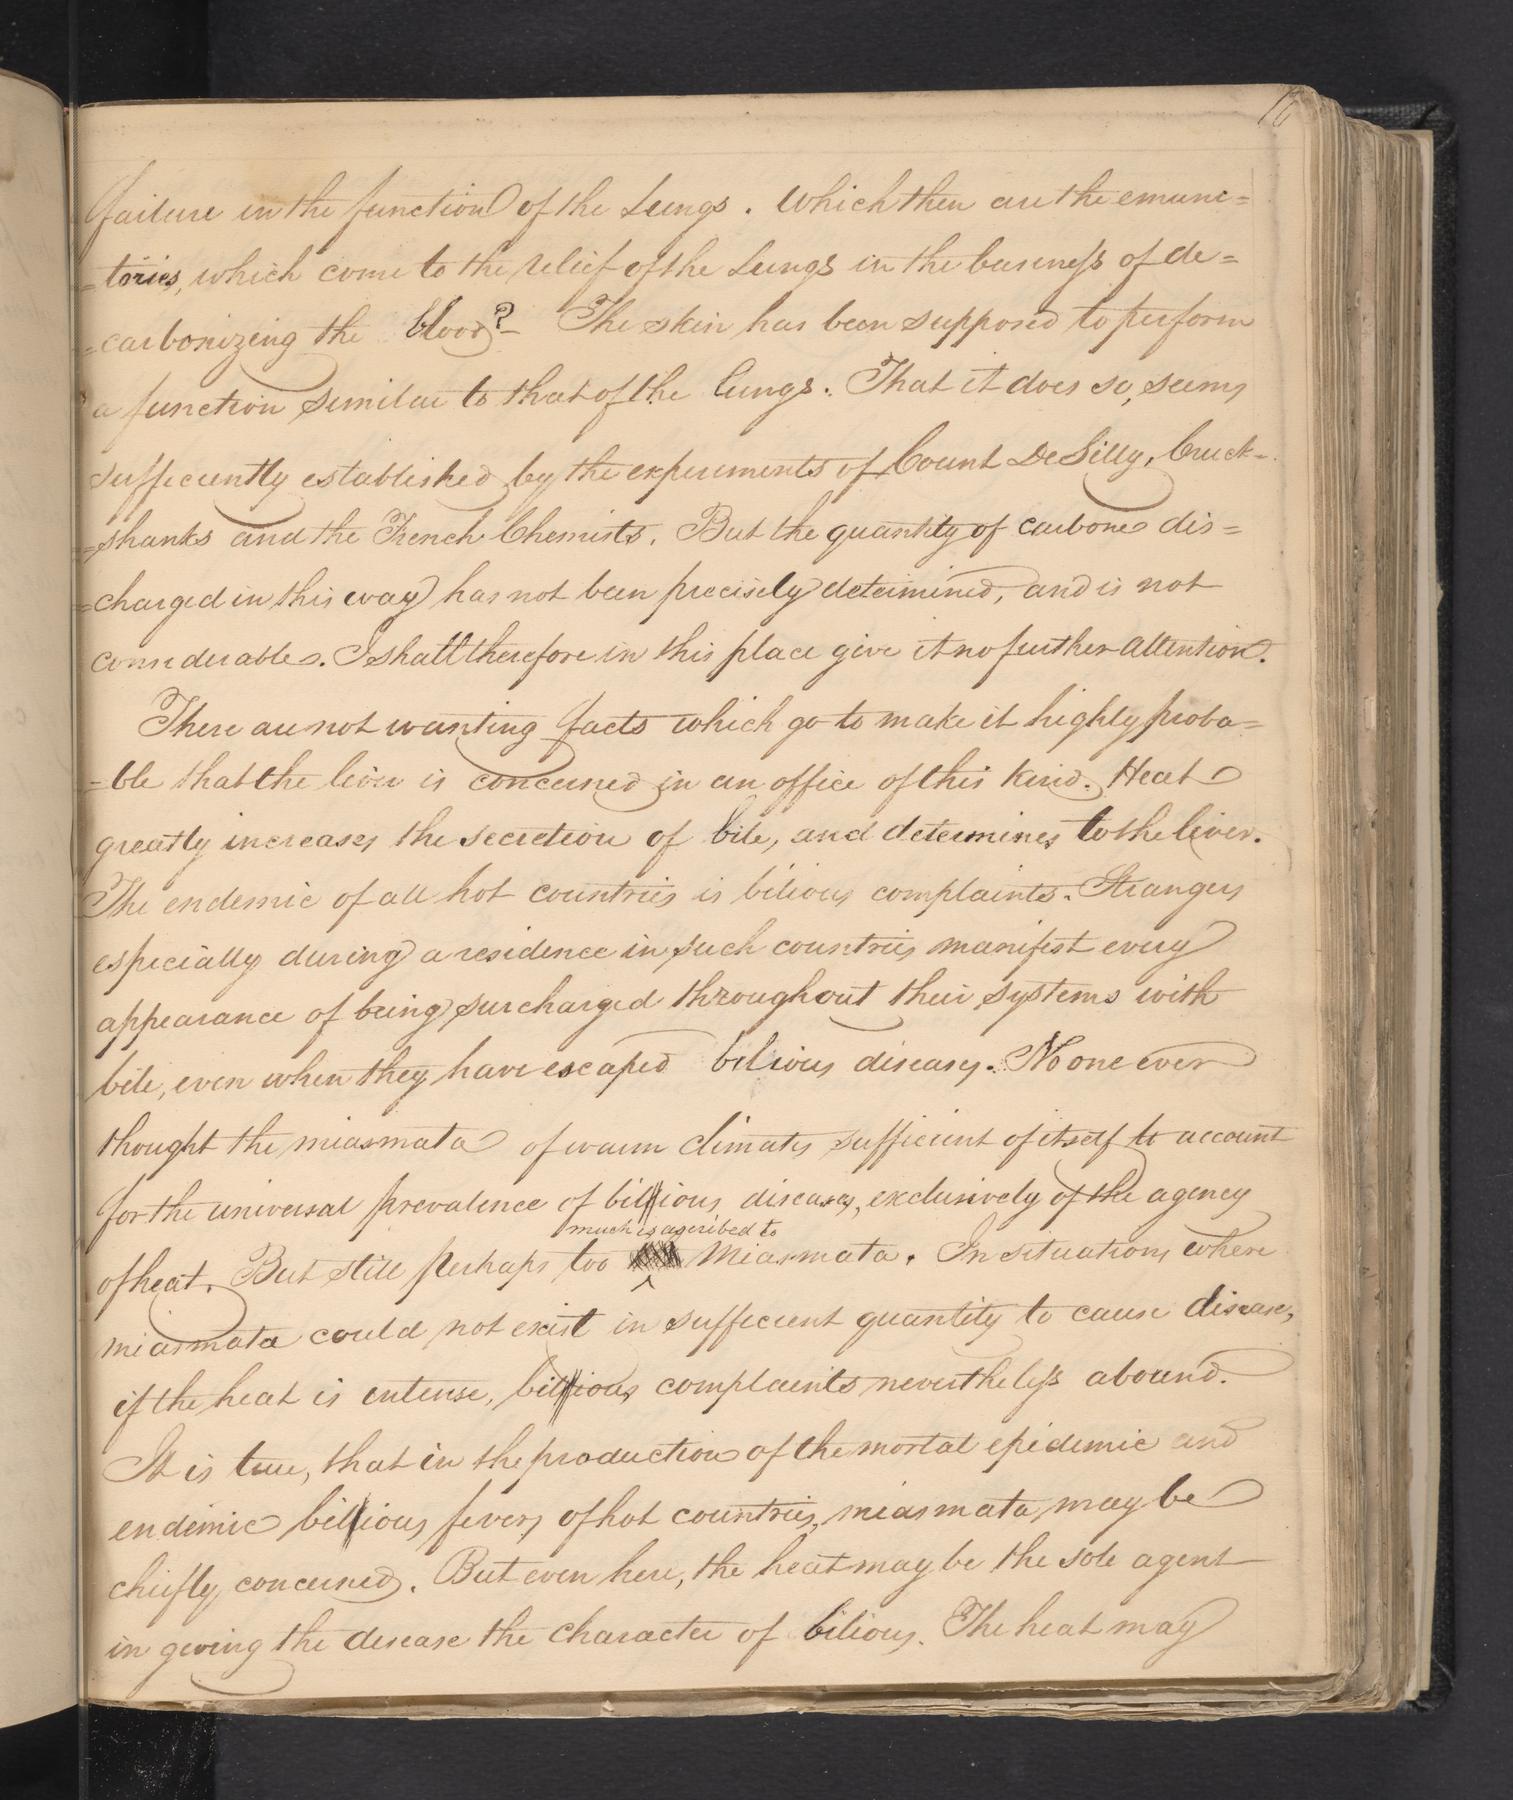 16
failure in the function of the Lungs. Which then are the emunc=
=tories, which come to the relief of the Lungs in the business of de=
=carbonizing the blood?- The skin has been supposed to perform
a function similar to that of the lungs. That it does so, seems
sufficiently established by the experiments of Count De Silly, Cruck=
=shanks and the French Chemists. But the quantity of carbone dis=
=charged in this way has not been precisely determined, and is not
considerable. I shall therefore in this place give it no further attention.
There are not wanting facts which go to make it highly proba=
=ble that the liver is concerned in an office of this kind. Heat
greatly increases the secretion of bile, and determines to the liver.
The endemic of all hot countries is bilious complaints. Strangers
especially during a residence in such countries manifest every
appearance of being surcharged throughout their systems with
bile, even when they have escaped bilious diseases. No one ever
thought the miasmata of warm climates sufficient of itself to account
for the universal prevalence of bilious diseases, exclusively of the agency
much is ascribed to
of heat. But still perhaps too miasmata. In situations where
miasmata could not exist in sufficient quantity to cause disease,
if the heat is intense, bilious complaints nevertheless abound.
It is true, that in the production of the mortal epidemic and
endemic bilious fevers of hot countries, miasmata, may be
chiefly concerned. But even here, the heat may be the sole agent
in giving the disease the character of bilious. The heat may